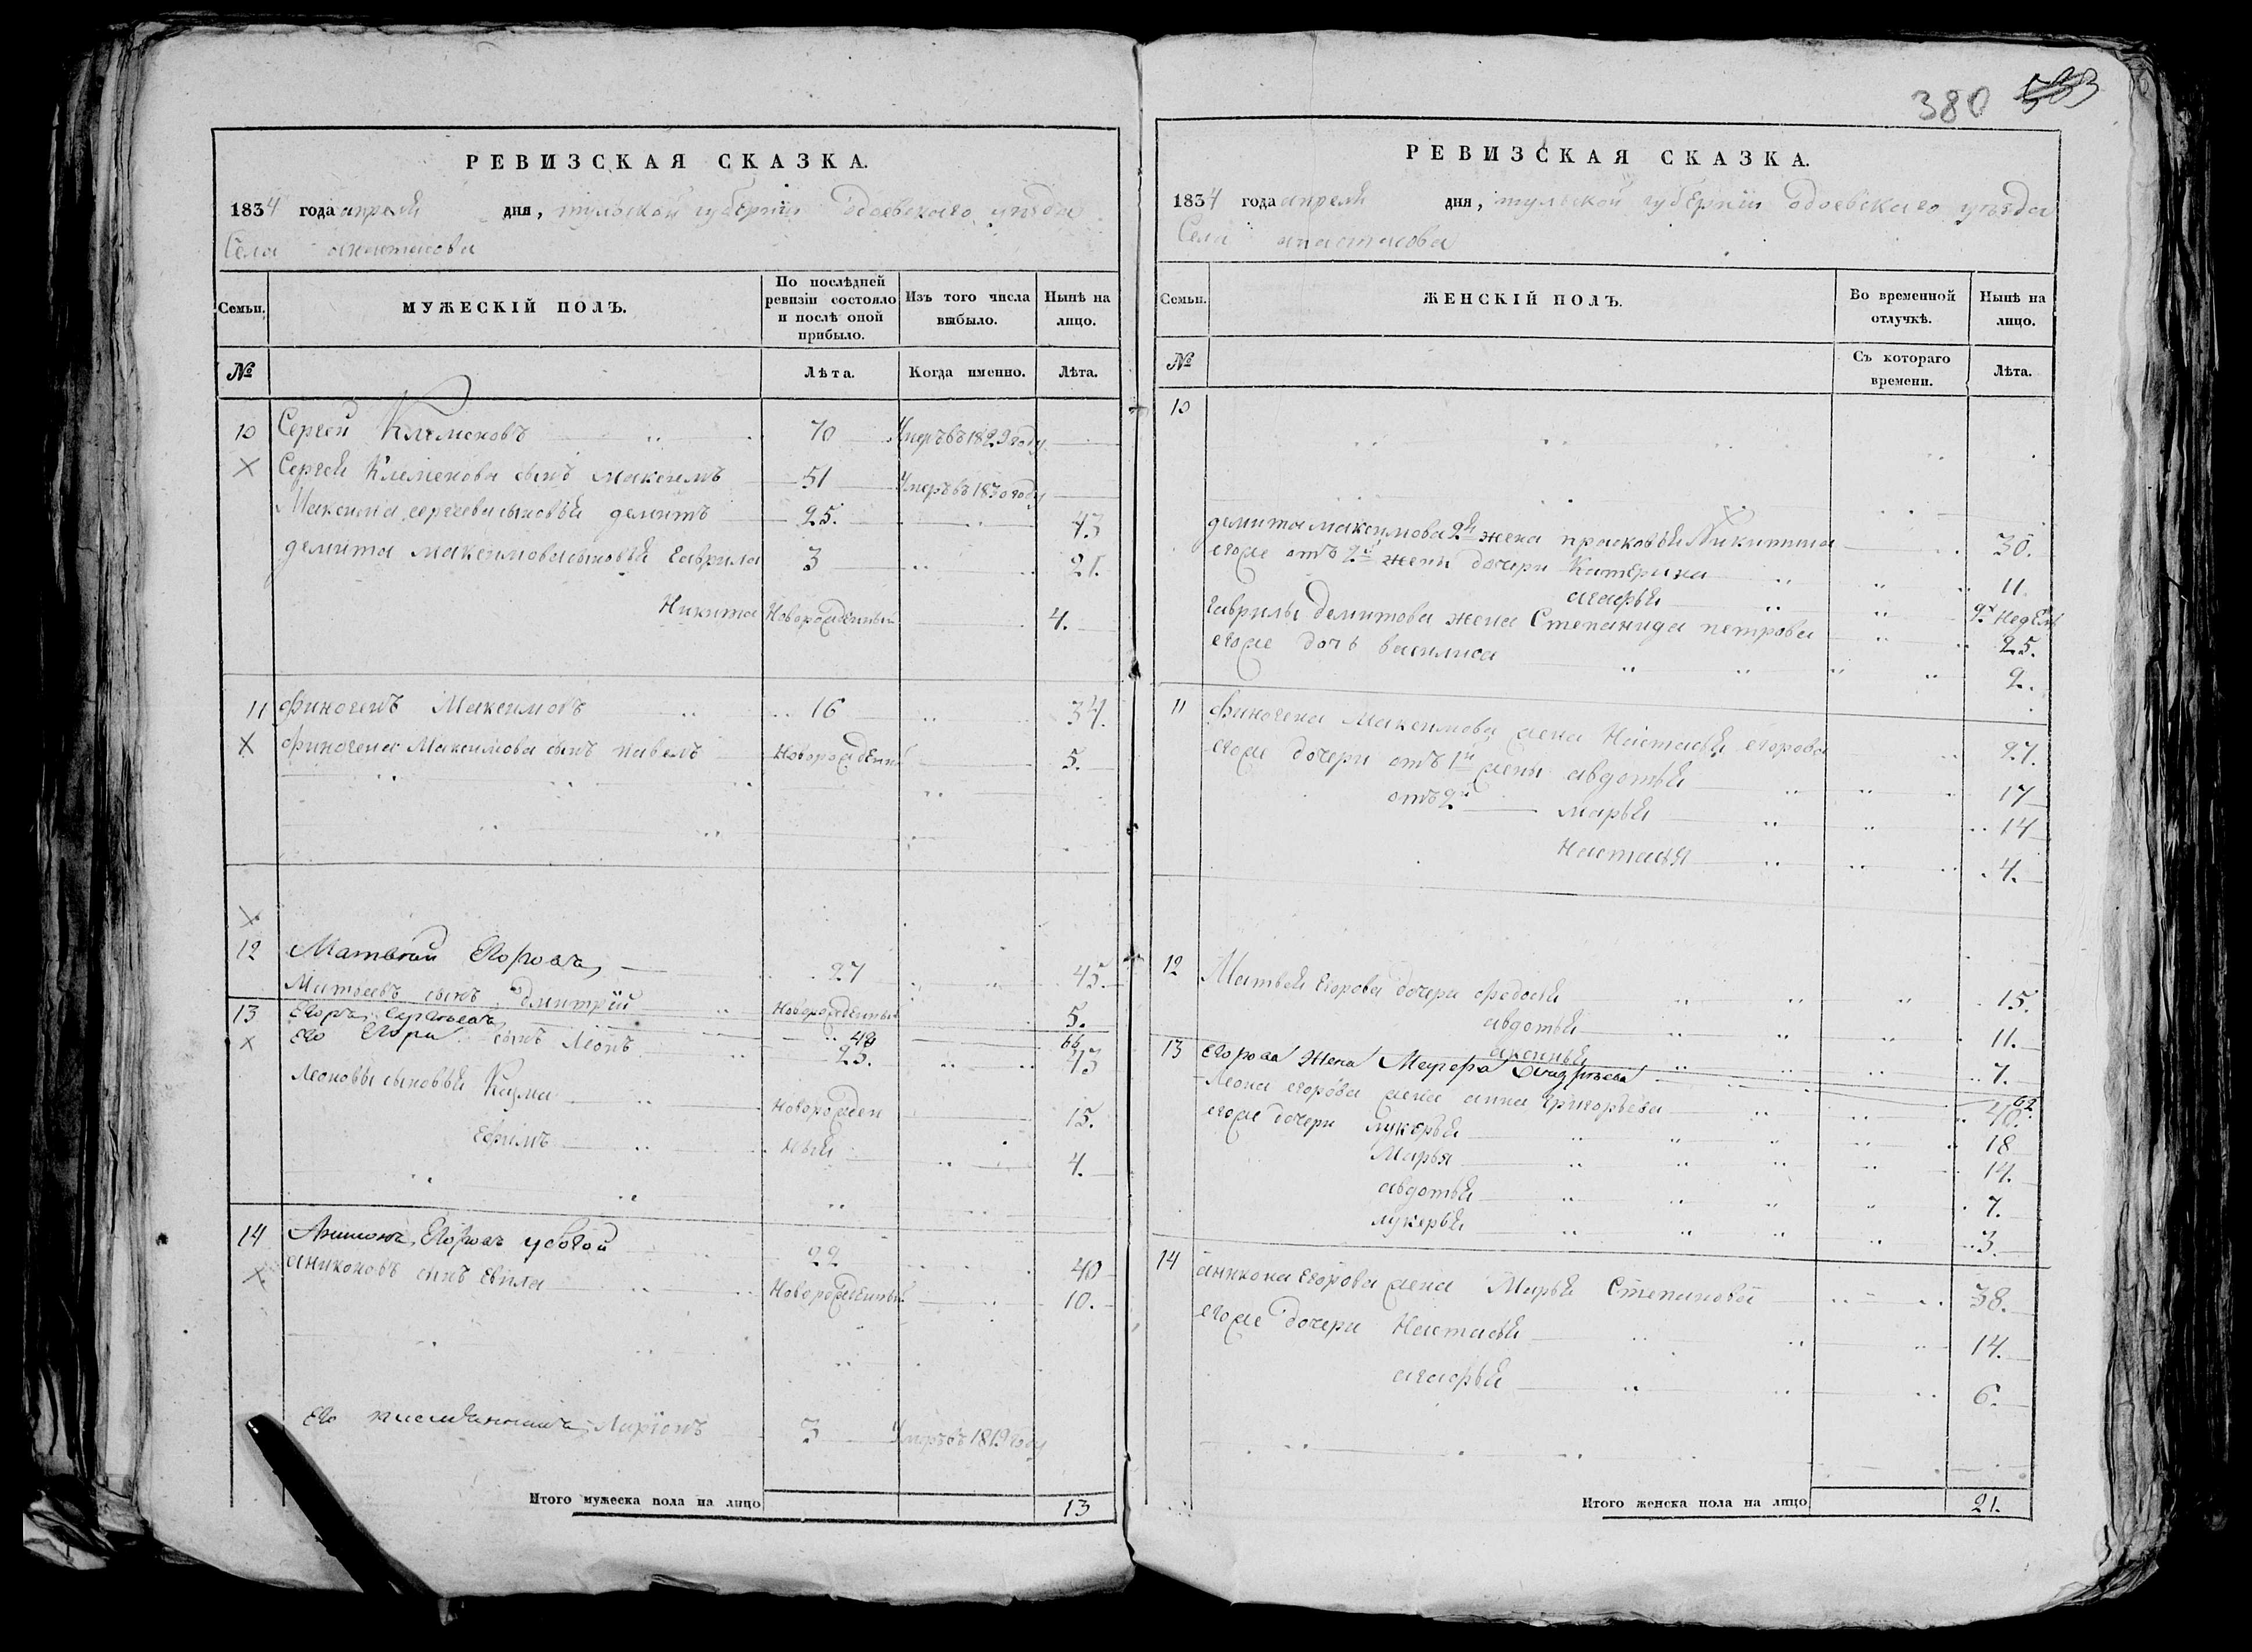 380 583
РЕВИЗСКАЯ СКАЗКА.
1834 года апреля дня, тульской губернии Одоевского уезда
Села анастасова
Семьи. МУЖЕСКІЙ ПОЛЪ. По послѣдней ревизіи состояло и послѣ оной прибыло. Изъ того числа выбыло. Нынѣ на лицо.
№ Лѣта. Когда именно. Лѣта.
10 Сергей Клеменовъ 70 Умеръ въ 1829 году
Сергея Клеменова сынъ максимъ 51 Умеръ въ 1830 году
Максима сергеева сыновья демитъ 25. 43
демита максимова сыновья Гаврила 3 21.
Никита Новорожденный 4.
11 финогенъ Максимовъ 16 34.
финогена Максимова сынъ павелъ Новорожденный 5.
12 Матвей Егоровъ 27 45.
Матвеевъ сынъ дмитрій Новорожденный 5.
13 Егоръ Сергѣевъ 48 66
Его Егора сынъ Леонъ 25. 43
Леоновы сыновья Кузма Новорожден 15.
Ефимъ ный 4.
14 Аниконъ Егоровъ 22 40
аниконовъ сынъ 	Новорожденный 10.
Его племянникъ Ларіонъ 3 Умеръ въ 1819 году
Итого мужеска пола на лицо 13
РЕВИЗСКАЯ СКАЗКА.
1834 года апреля дня, тульской губерніи Одоевского уезда
Села анастасова
Семьи. ЖЕНСКІЙ ПОЛЪ. Во временной отлучкѣ. Нынѣ на лицо.
№ Съ котораго времени. Лѣта.
10
демита максимова 2я жена прасковья Никитина 30.
егоже отъ 2й жены дочери Катерина 11.
агафья 9 недель
гаврилы демитова жена Степанида петрова 25.
егоже дочь василиса 2.
11 финогена Максимова жена Настасья егорова 27.
егоже дочери отъ 1й жены авдотья 17
отъ 2й марья 14
Настасья 4.
12 Матвея Егорова дочери федосья 15.
авдотья 11.
аксинья 7.
13 Егорова жена Андреева 62
Леона егорова жена анна григорьева 40.
егоже дочери лукерья 18
Марья 14.
авдотья 7.
лукерья 3.
14 аникона егорова жена Марья Степанова 38.
егоже дочери Настасья 14.
агафья 6.
Итого женска пола на лицо 21.